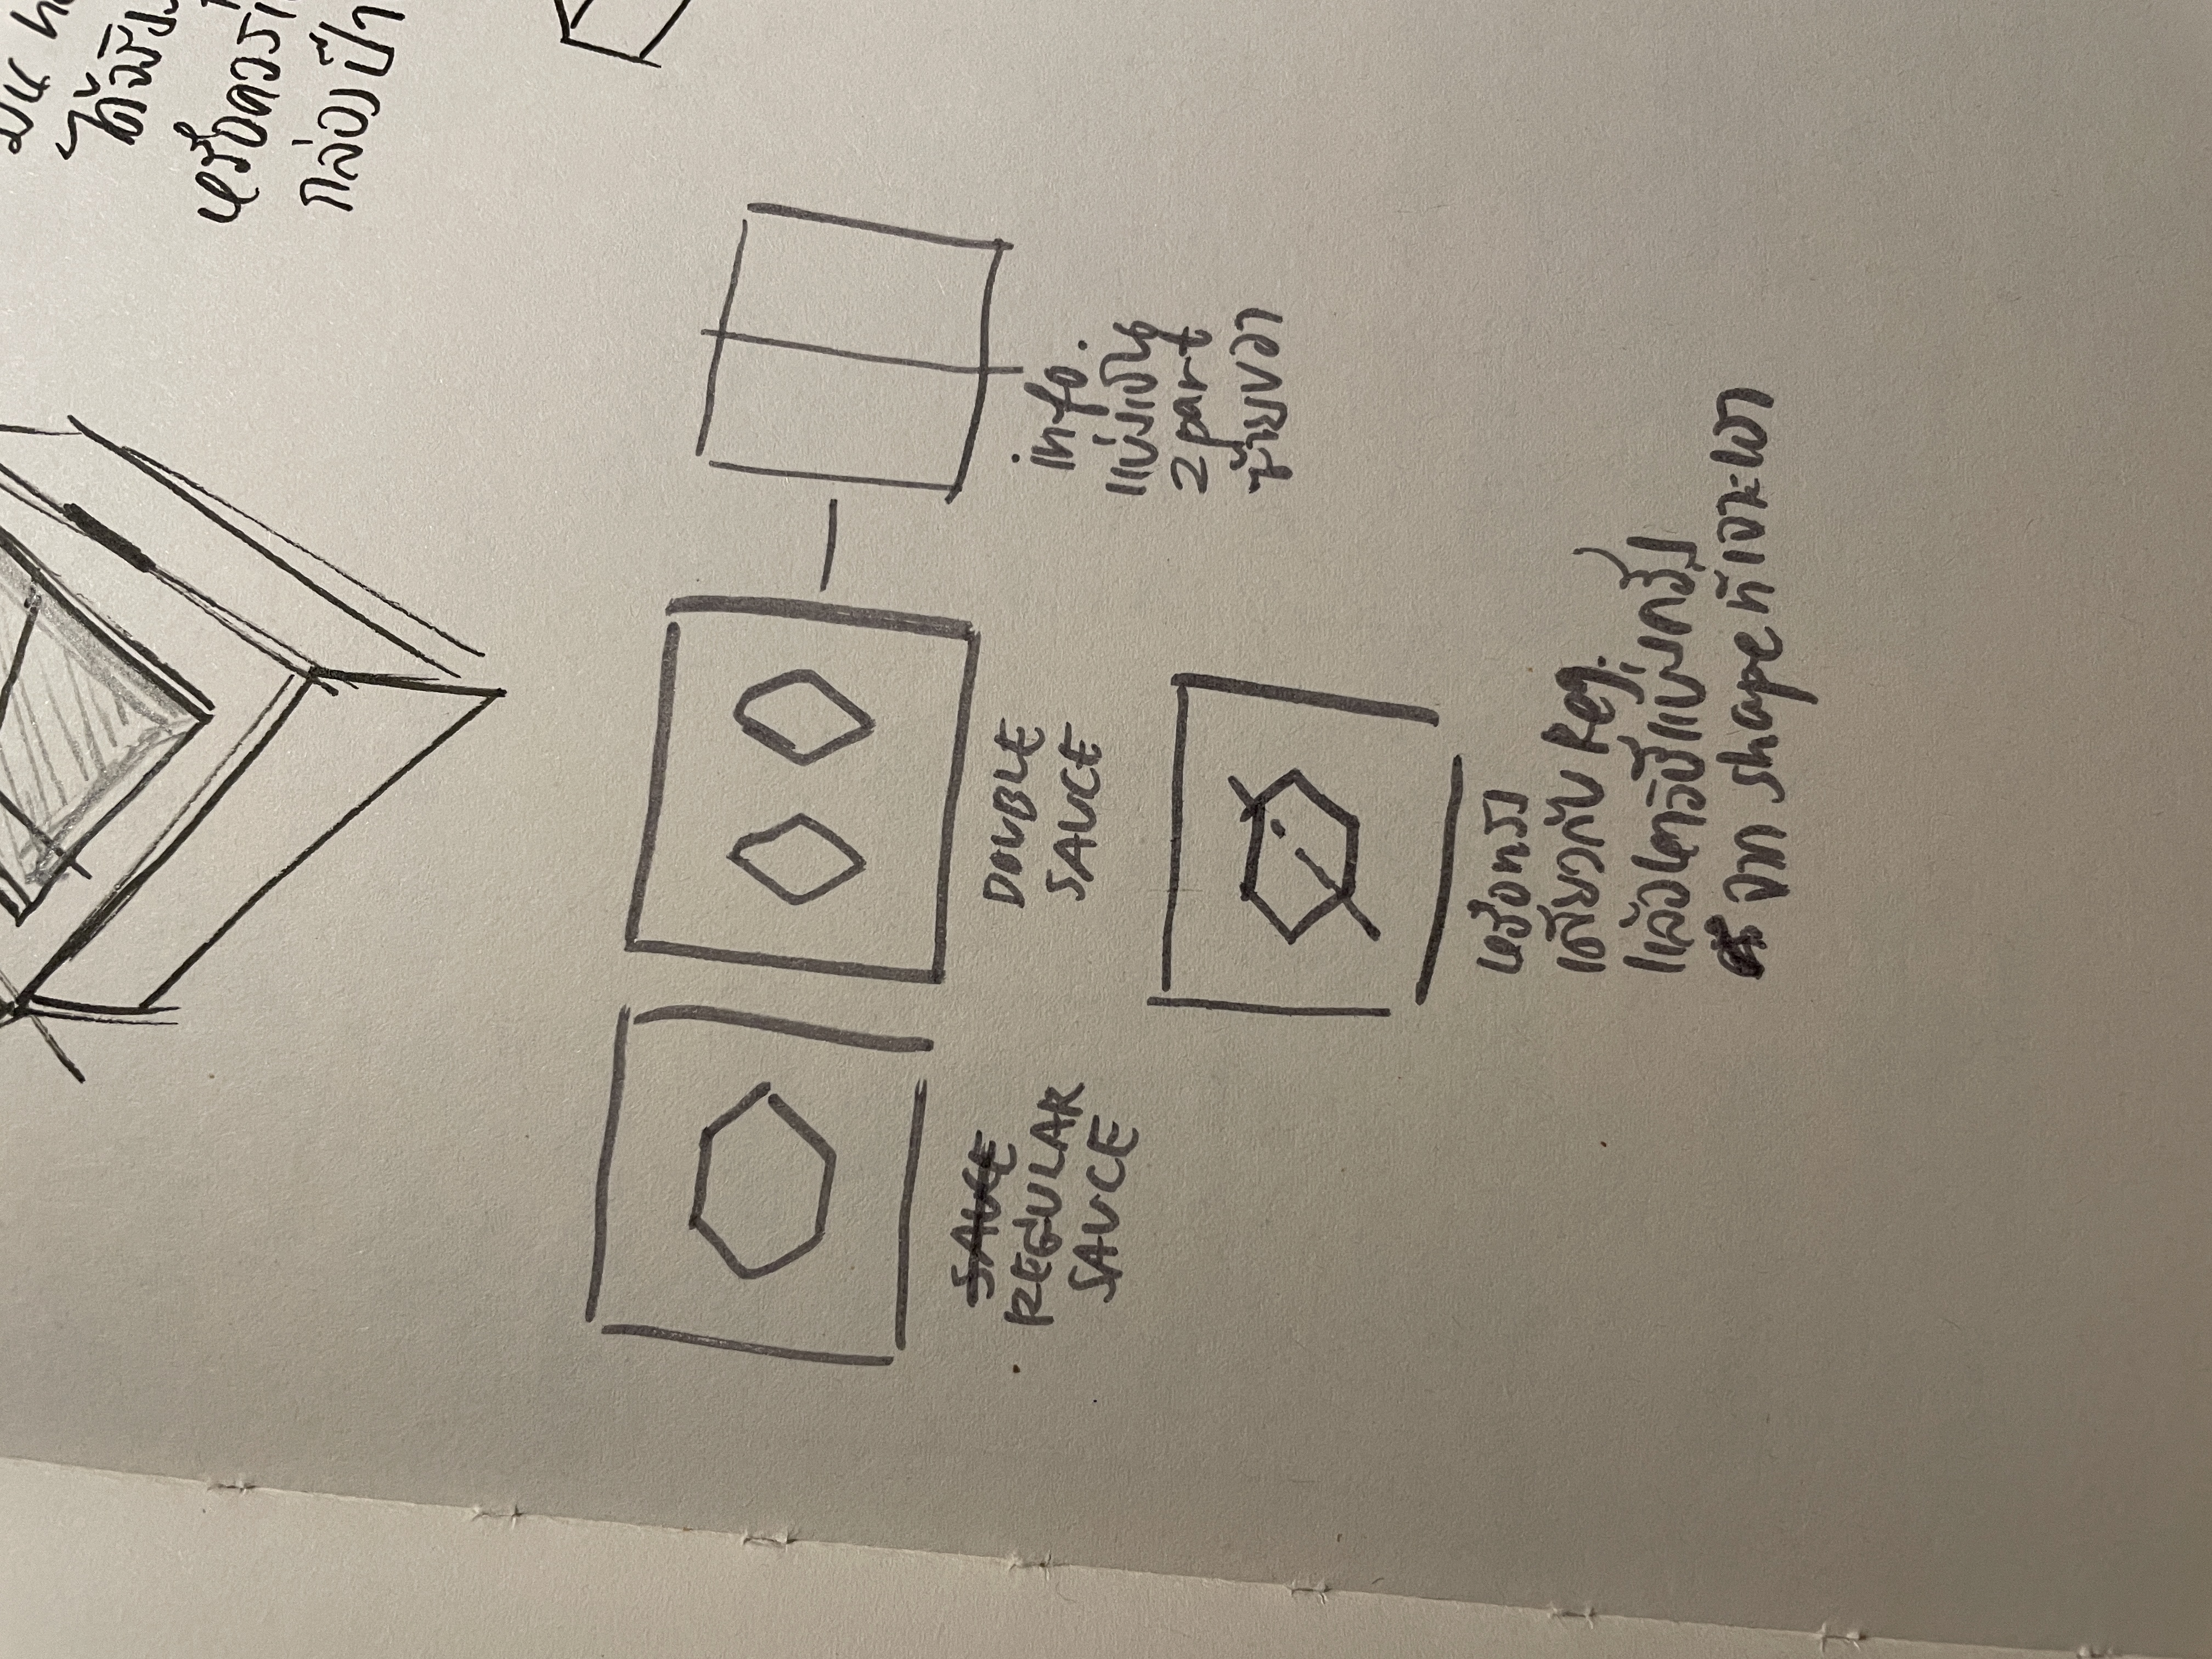 ได้
หรือควร
กล่อง
info.
แบ่งเป็น
2 part
ซ้ายขวา
DOUBLE
SAUCE
SAUCE
REGULAR
SAUCE
หรือทรง
เดียวกับ Reg.
แล้วใช้วิธีแบ่งครึ่ง
จาก shape ที่เจาะเอา